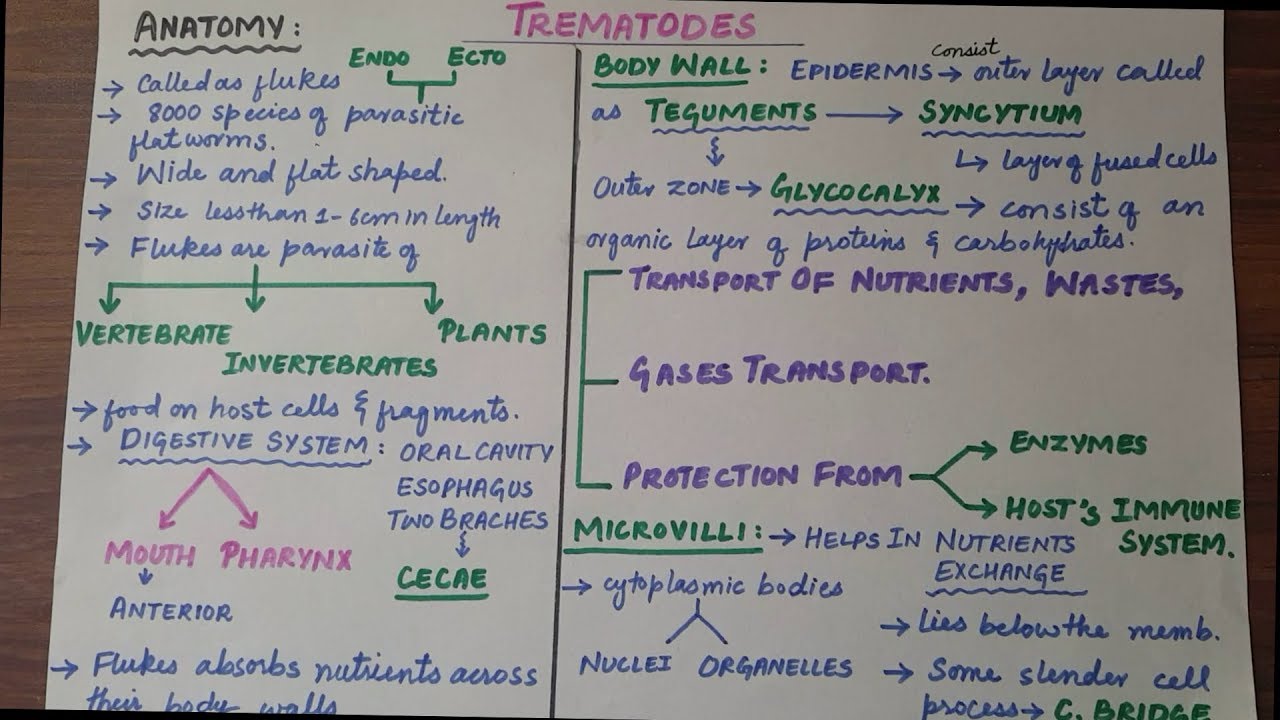 TREMATODES
ANATOMY:
ENDO ECTO
→ Called as flukes
→ 8000 species of parasitic
flatworms.
→ Wide and flat shaped.
→ Size lessthan 1-6cm in length
→ Flukes are parasite of
VERTEBRATE
PLANTS
INVERTEBRATES
→ food on host cells & fragments.
→ DIGESTIVE SYSTEM: ORAL CAVITY
ESOPHAGUS
TWO BRACHES
CECAE
MOUTH PHARYNX
ANTERIOR
→ Flukes absorbs nutrients across
their body walls
BODY WALL: EPIDERMIS → consist outer layer called
as TEGUMENTS → SYNCYTIUM
↳ layer of fused cells
Outer ZONE → GLYCOCALYX → consist of an
organic layer of proteins & carbohydrates.
TRANSPORT OF NUTRIENTS, WASTES,
GASES TRANSPORT.
PROTECTION FROM
ENZYMES
HOST'S IMMUNE
SYSTEM.
MICROVILLI: → HELPS IN NUTRIENTS
EXCHANGE
→ cytoplasmic bodies
NUCLEI ORGANELLES
→ Lies below the memb.
→ Some slender cell
process → C. BRIDGE